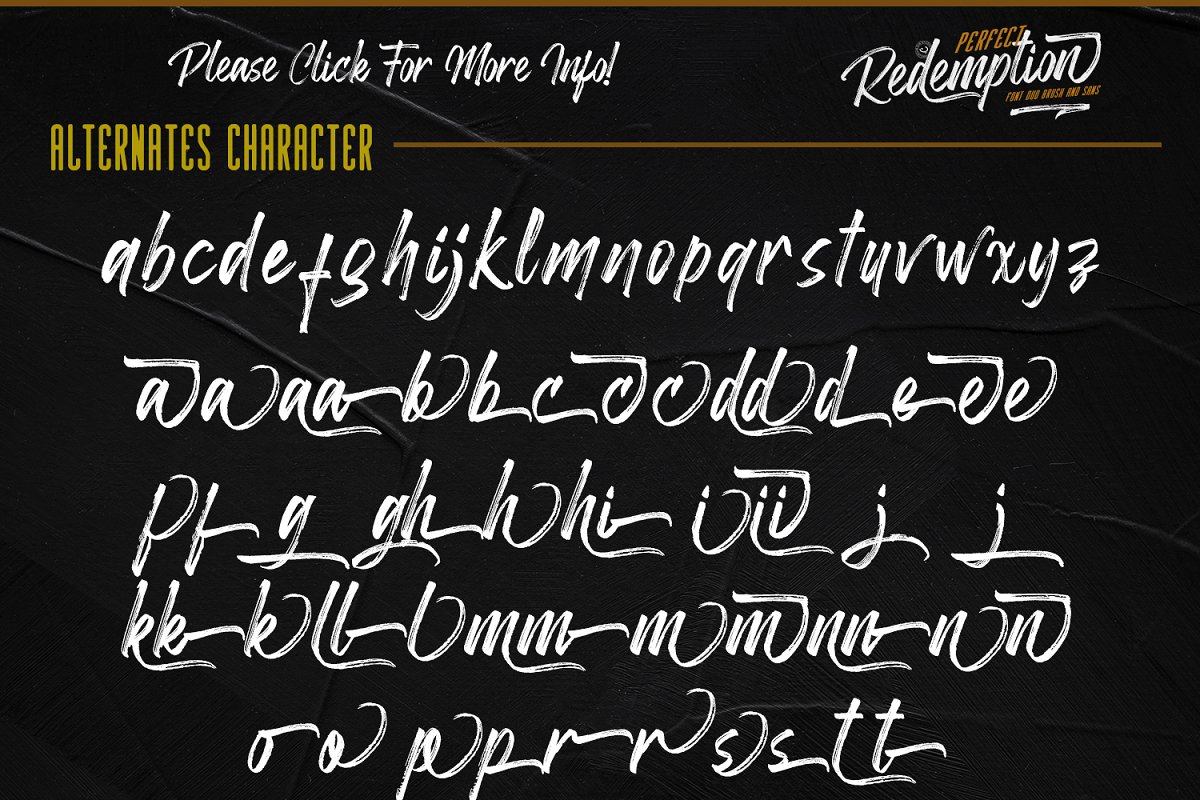 Please Click For More Info!
PERFECT
Redemption
FONT DUO BRUSH AND SANS
ALTERNATES CHARACTER
abcdefghijklmnopqrstuvwxyz
a a a a b b c c c d d d e e e
f f g g h h h i i i i j j
k k k l l l m m m m n n n n
o o p p r r s s t t